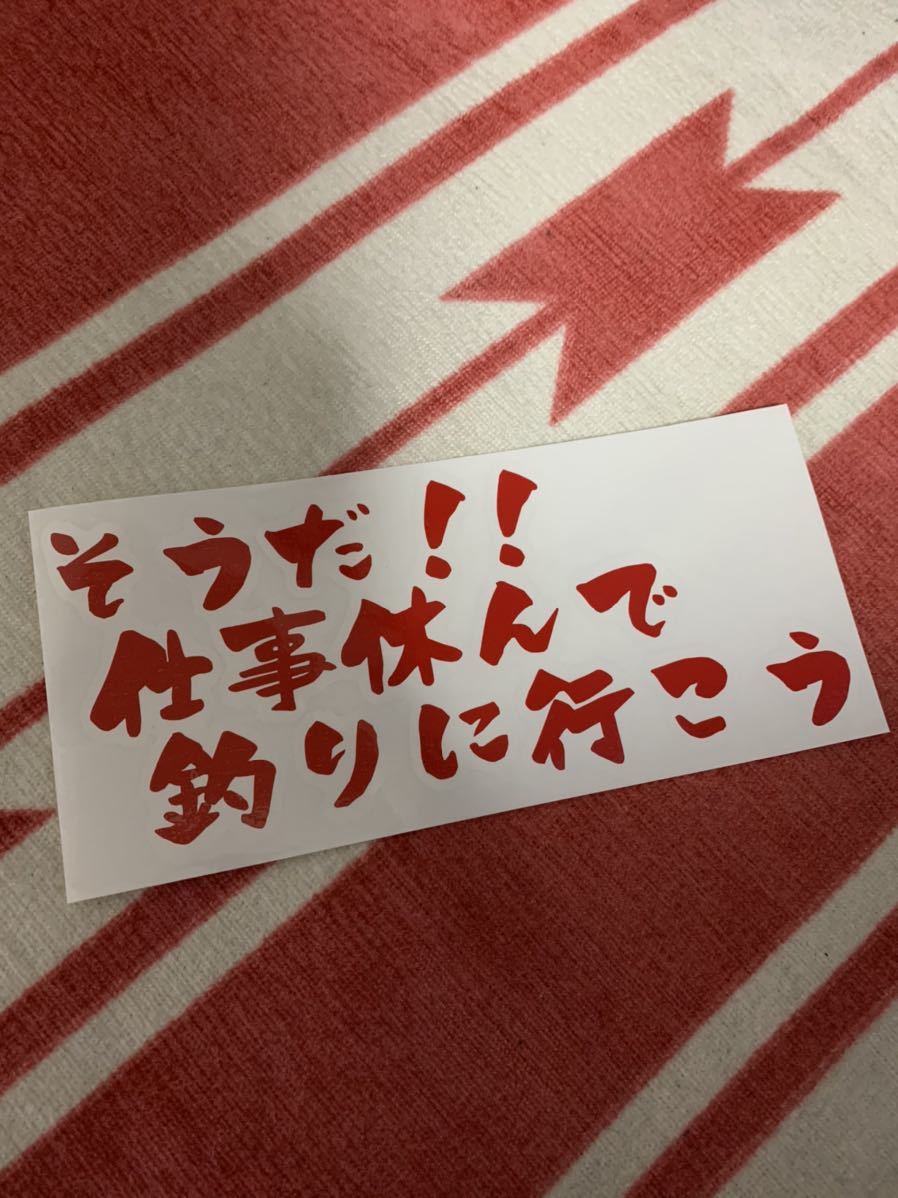 そうだ！！
仕事休んで
釣りに行こう